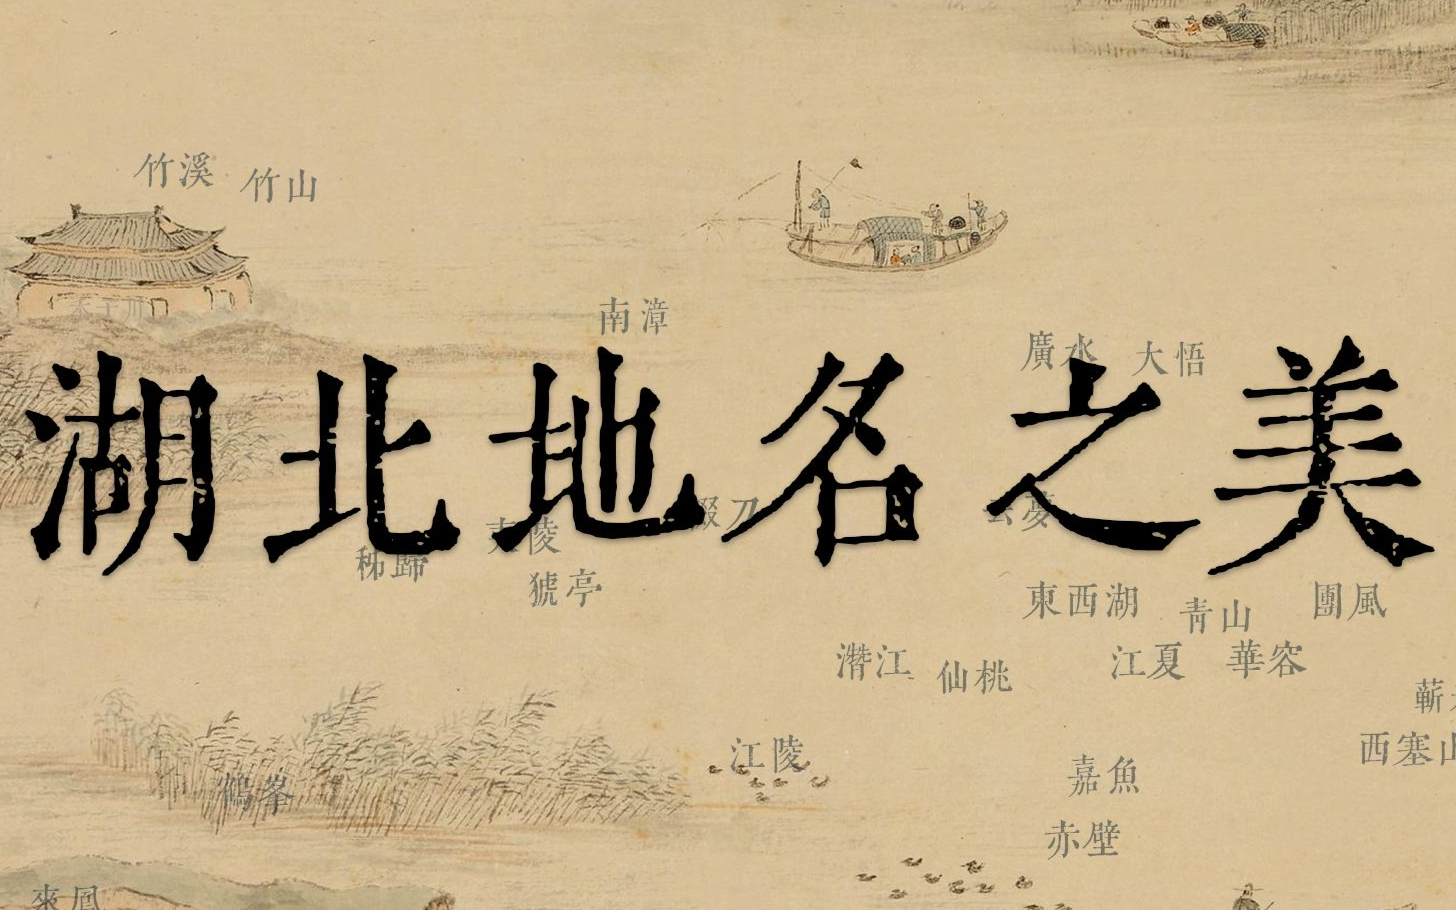 竹溪
竹山
南漳
廣水
大悟
湖北地名之美
掇刀
雲夢
夷陵
秭歸
猇亭
東西湖
青山
團風
潛江
仙桃
江夏
華容
蘄
西塞山
江陵
嘉魚
鶴峯
赤壁
來鳳